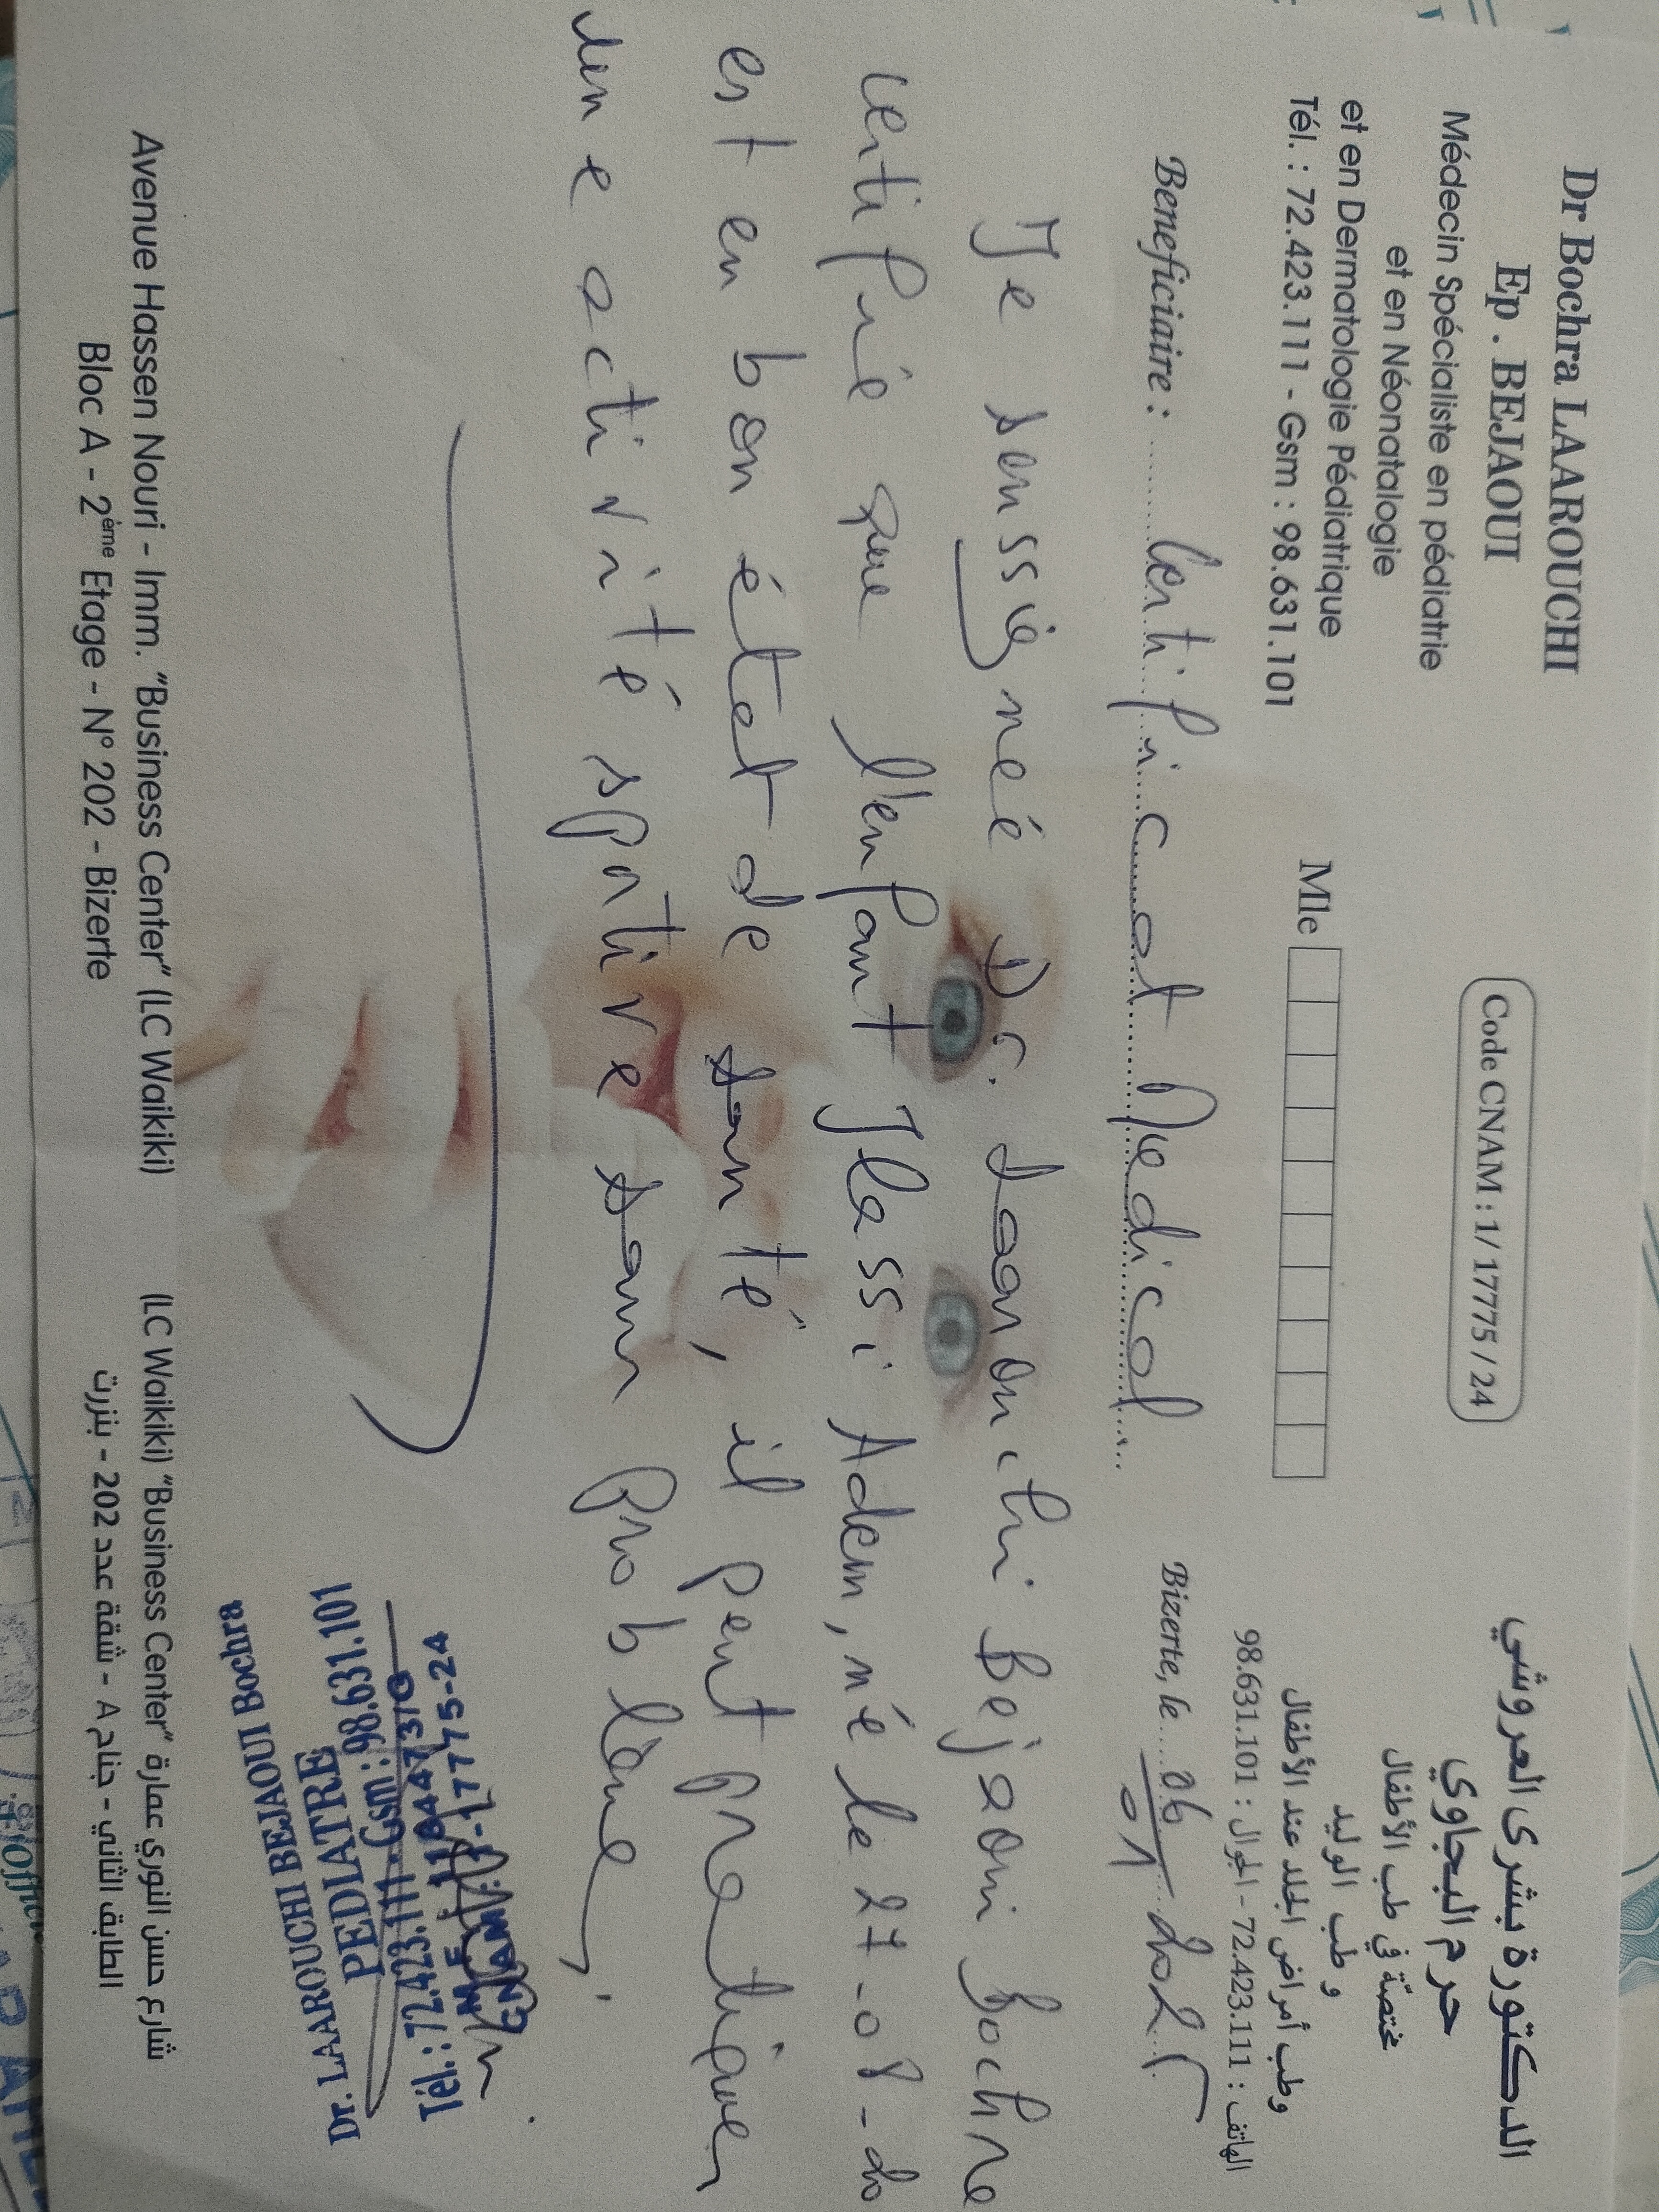 Dr Bochra LAAROUCHI
Ep . BEJAOUI
Médecin Spécialiste en pédiatrie
et en Néonatalogie
et en Dermatologie Pédiatrique
Tél. : 72.423.111 - Gsm : 98.631.101
Code CNAM : 1/ 17775 / 24
Mle
الدكتورة بشرى العروشي
حرم البجاوي
مختصّة في طب الأطفال
و طب الوليد
وطب أمراض الجلد عند الأطفال
الهاتف : 72.423.111 - الجوال : 98.631.101
Beneficiaire : Certificat Medical
Bizerte, le 06 01 2025
Je soussigné Dr. Laarouchi Bejaoui Bochra
certifie que l'enfant Jlassi Adem, né le 27-08-20
est en bon état de santé, il peut pratiquer
une activité sportive sans problème.
Dr. LAAROUCHI BEJAOUI Bochra
PEDIATRE
Tél.: 72.423.111 - Gsm : 98.631.101
CNAM: 1-17775-24
Avenue Hassen Nouri - Imm. "Business Center" (LC Waikiki)
Bloc A - 2ème Etage - N° 202 - Bizerte
شارع حسن النوري عمارة "Business Center" (LC Waikiki)
الطابق الثاني - جناح A - شقة عدد 202 - بنزرت